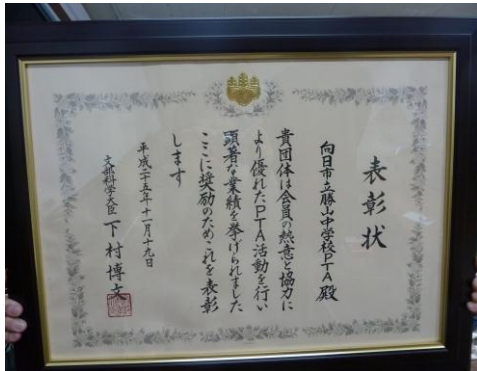 表彰状
向日市立勝山中学校PTA殿
貴団体は会員の熱意と協力に
より優れたPTA活動を行い
顕著な業績を挙げられました
ここに奨励のためこれを表彰
します
平成二十五年十一月十九日
文部科学大臣 下村博文